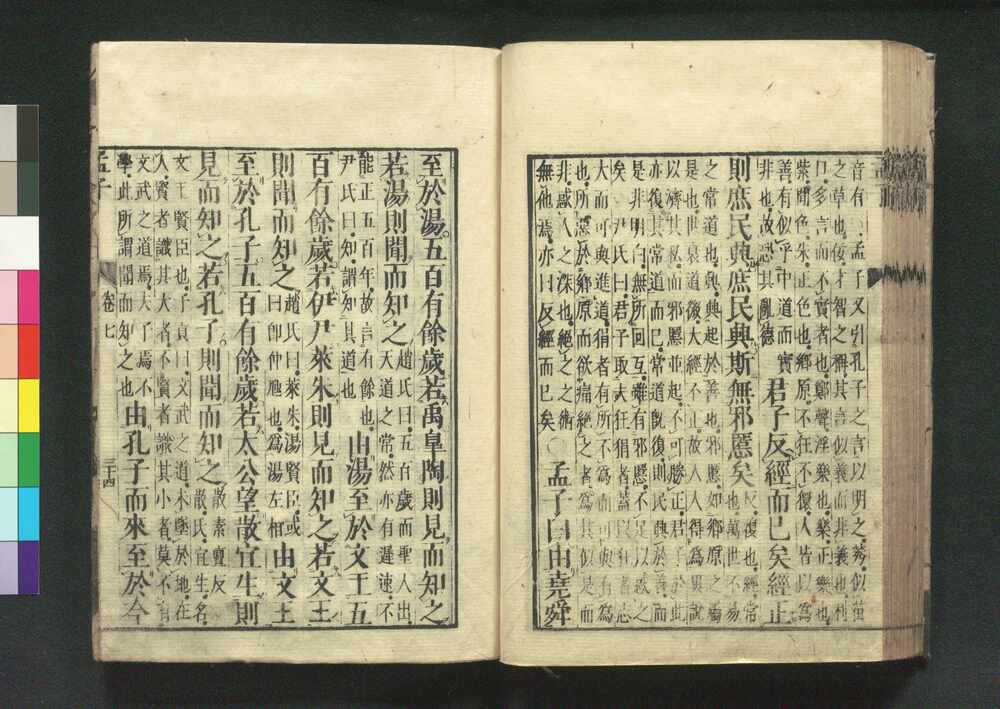 音有○孟子又引孔子之言以明之莠似苗
之草也佞才智之稱其言似義而非義也利
口多言而不實者也鄭聲淫樂也樂正樂也
紫間色朱正色也鄉原不狂不獧人皆以為
善有似乎中道而實
非也故恐其亂德
君子反經而已矣經正
則庶民興庶民興斯無邪慝矣
反復也經常
也萬世不易
之常道也興興起於善也邪慝如鄉原之屬
是也世衰道微大經不正故人人得為異說
以濟其私而邪慝並起不可勝正君子於此
亦復其常道而已常道既復則民興於善而
是非明白無所回互雖有邪慝不足以惑之
矣○尹氏曰君子取夫狂獧者蓋以狂者志
大而可與進道獧者有所不為而可與有為
也所惡於鄉原而欲痛絕之者為其似是而
非惑人之深也絕之之術
無他焉亦曰反經而已矣
○孟子曰由堯舜
至於湯五百有餘歲若禹皐陶則見而知之
若湯則聞而知之
趙氏曰五百歲而聖人出
天道之常然亦有遲速不
能正五百年故言有餘也
尹氏曰知謂知其道也
由湯至於文王五
百有餘歲若伊尹萊朱則見而知之若文王
則聞而知之
趙氏曰萊朱湯賢臣或
曰即仲虺也為湯左相
由文王
至於孔子五百有餘歲若太公望散宜生則
見而知之若孔子則聞而知之
散素亶反
散氏宜生名
文王賢臣也子貢曰文武之道未墜於地在
人賢者識其大者不賢者識其小者莫不有
文武之道焉夫子焉不
學此所謂聞而知之也
由孔子而來至於今
孟子
卷七
三十四